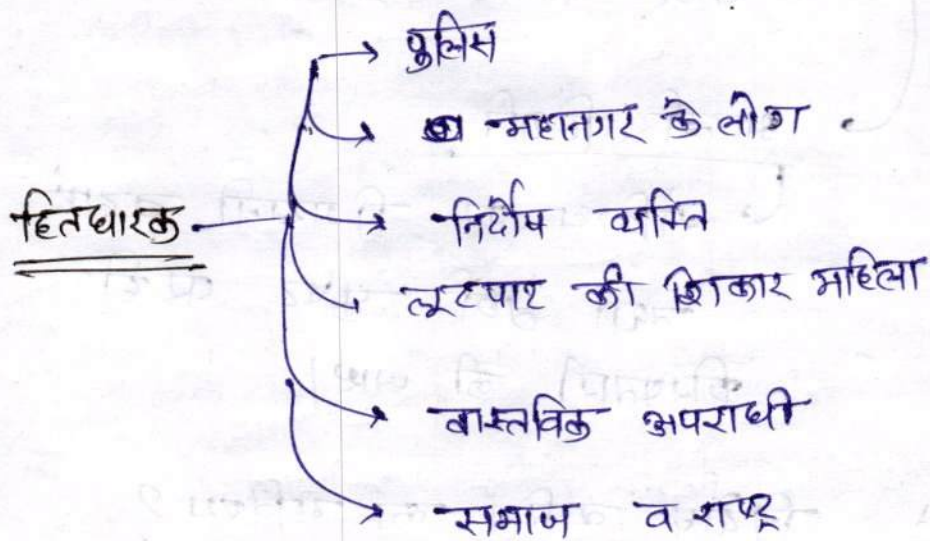 हितधारक
पुलिस
महानगर के लोग
निर्दोष व्यक्ति
लूटपाट की शिकार महिला
वास्तविक अपराधी
समाज व राष्ट्र